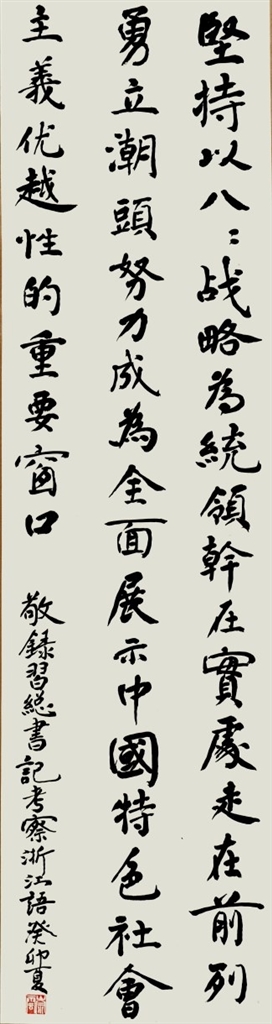 堅持以八〻战略為統領幹在實處走在前列
勇立潮頭努力成為全面展示中國特色社會
主義优越性的重要窗口
敬録習総書記考察浙江語癸卯夏